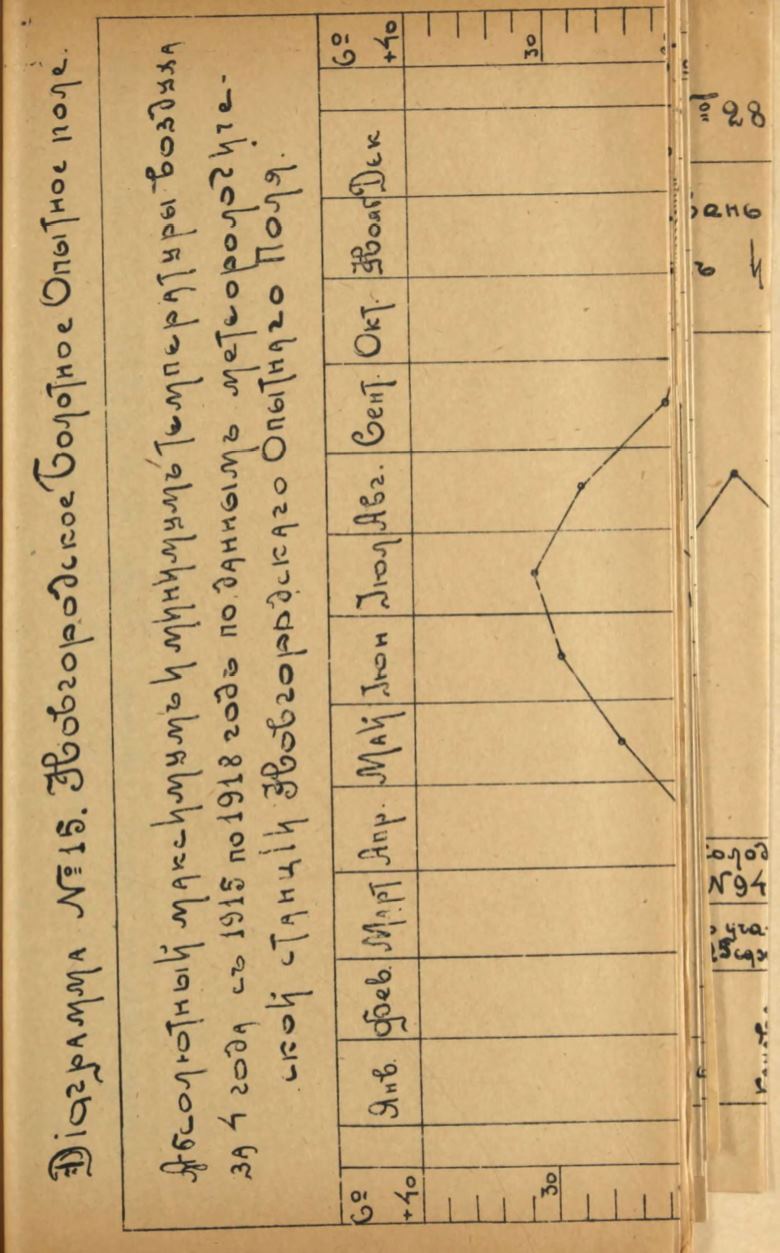 Діаграмма №15. Новгородское Болотное Опытное поле.
Абсолютный максимумъ и минимумъ температуры воздуха
за 4 года съ 1915 по 1918 годъ по даннымъ метеорологиче-
ской станціи Новгородскаго Опытнаго Поля.
С° Янв. Фев. Март Апр. Май Іюн Іюл Авг. Сент. Окт. Нояб Дек С°
+40 +40
30 30
28